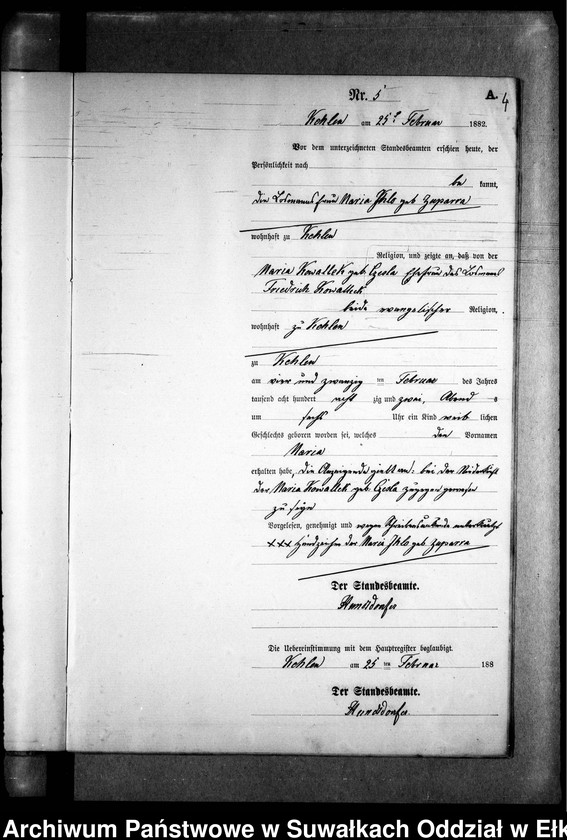 Nr. 5 A. 4
Kehlen am 25t Februar 1882.
Vor dem unterzeichneten Standesbeamten erschien heute, der
Persönlichkeit nach
be kannt,
die Losmannsfrau Maria Ihlo geb Zaparra
wohnhaft zu Kehlen
Religion, und zeigte an, daß von der
Maria Kowalleck geb. Czesla Ehefrau des Losmanns
Friedrich Kowalleck
beide evangelischer Religion,
wohnhaft zu Kehlen
zu Kehlen
am vier und zwanzig ten Februar des Jahres
tausend acht hundert acht zig und zwei, Abend s
um sechs Uhr ein Kind weib lichen
Geschlechts geboren worden sei, welches den Vornamen
Maria
erhalten habe, die Anzeigende giebt an: bei der Niederkunft
der Maria Kowalleck geb. Czesla zugegen gewesen
zu sein
Vorgelesen, genehmigt und wegen Schreibensunkunde unterkreuzt
+++ Handzeichen der Maria Ihlo geb Zaparra
Der Standesbeamte.
Die Uebereinstimmung mit dem Hauptregister beglaubigt.
Kehlen am 25 ten Februar 188
Der Standesbeamte.
Archiwum Państwowe w Suwałkach Oddział w Ełk